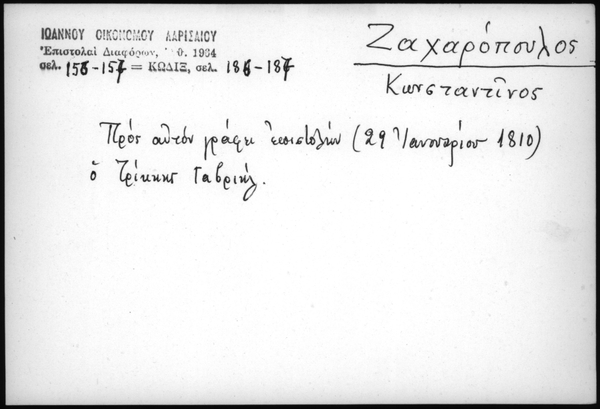 ΙΩΑΝΝΟΥ ΟΙΚΟΝΟΜΟΥ ΛΑΡΙΣΑΙΟΥ
Ἐπιστολαὶ Διαφόρων, 1964
σελ. 156-157 = ΚΩΔΙΞ, σελ. 186-187
Ζαχαρόπουλος
Κωνσταντῖνος
Πρὸς αὐτὸν γράφει ἐπιστολὴν (29 Ἰανουαρίου 1810)
ὁ Τρίκκης Γαβριήλ.